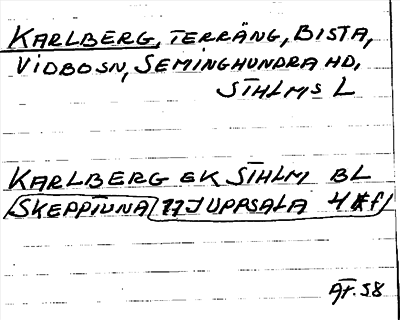 KARLBERG, TERRÄNG, BISTA,
VIDBOSN, SEMINGHUNDRA HD,
STHLMS L
KARLBERG EK STHLM BL
SKEPPTUNA 11J UPPSALA 4
ÄT. 58